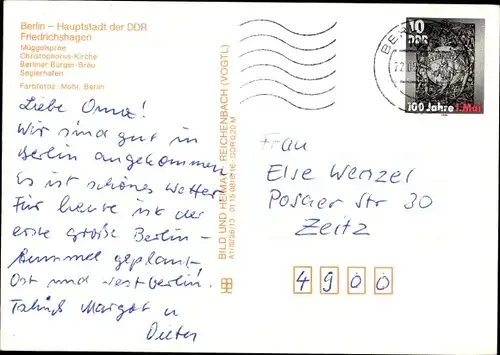 Berlin – Hauptstadt der DDR
Friedrichshagen
Müggelspree
Christophorus-Kirche
Berliner Bürger-Bräu
Seglerhafen
Farbfotos: Mohr, Berlin
Liebe Oma!
Wir sind gut in
Berlin angekommen.
Es ist schönes Wetter
Für heute ist der
erste große Berlin-
Bummel geplant
Ost und Westberlin!
Margot u
Dieter
BILD UND HEIMAT REICHENBACH (VOGTL)
10
DDR
100 Jahre 1. Mai
Frau
Else Wenzel
Posaer Str 30
Zeitz
4900